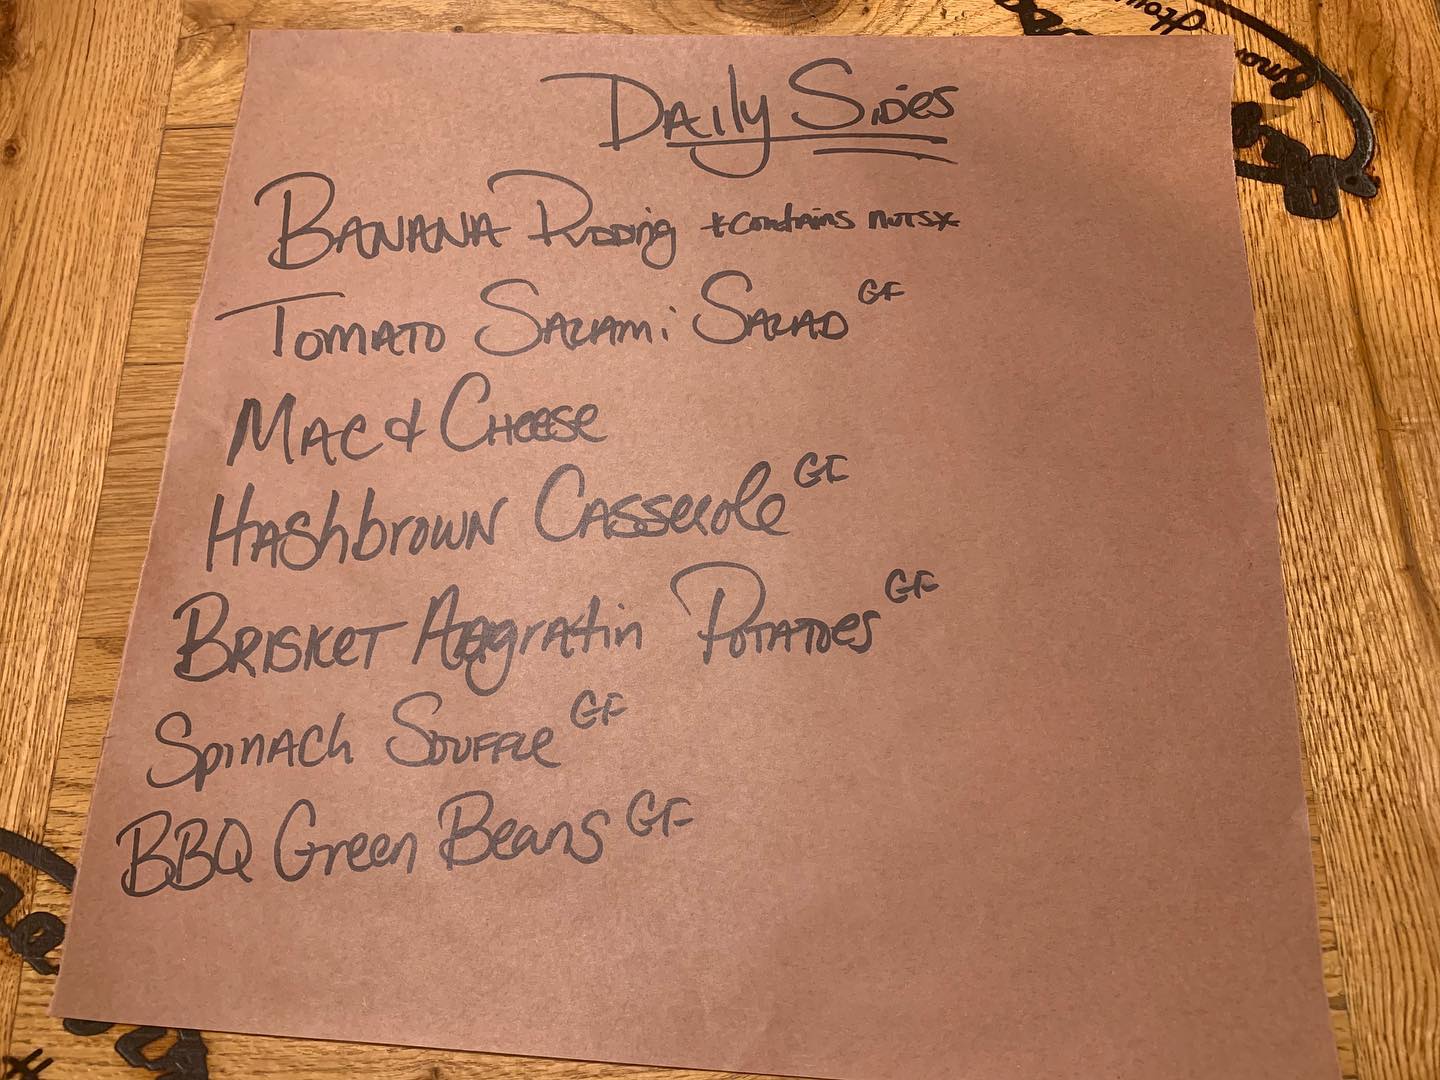 Daily Sides
Banana Pudding *contains nuts*
Tomato Salami Salad GF
Mac & Cheese
Hashbrown Casserole GF
Brisket Augratin Potatoes GF
Spinach Souffle GF
BBQ Green Beans GF